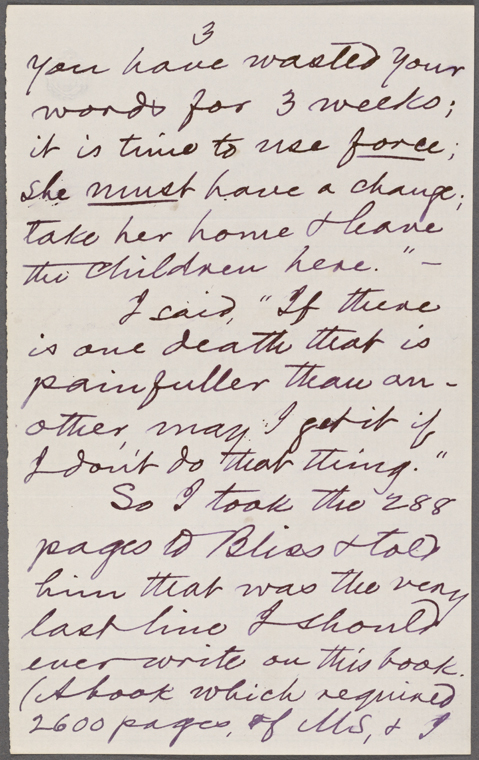 3
You have wasted your
words for 3 weeks;
it is time to use force;
she must have a change;
take her home & leave
the children here." —
I said, "If there
is one death that is
painfuller than an-
other, may I get it if
I don't do that thing."
So I took the 288
pages to Bliss & told
him that was the very
last line I should
ever write on this book.
(A book which required
2600 pages of MS, & I